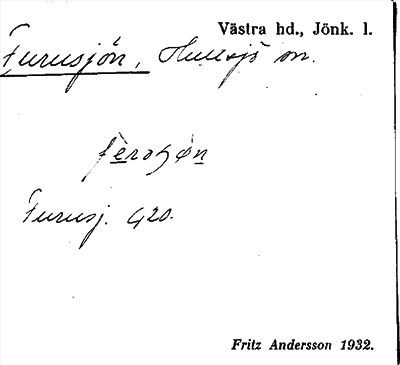 Västra hd., Jönk. l.
Furusjön, Hullsjö sn.
Furusj. G20.
Fritz Andersson 1932.